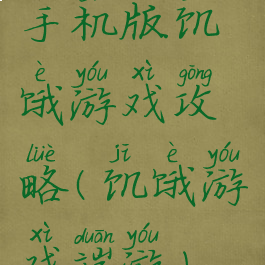 手机版饥
è yóu xì gōng
饿游戏攻
lüè jī è yóu
略(饥饿游
xì duān yóu
戏端游)